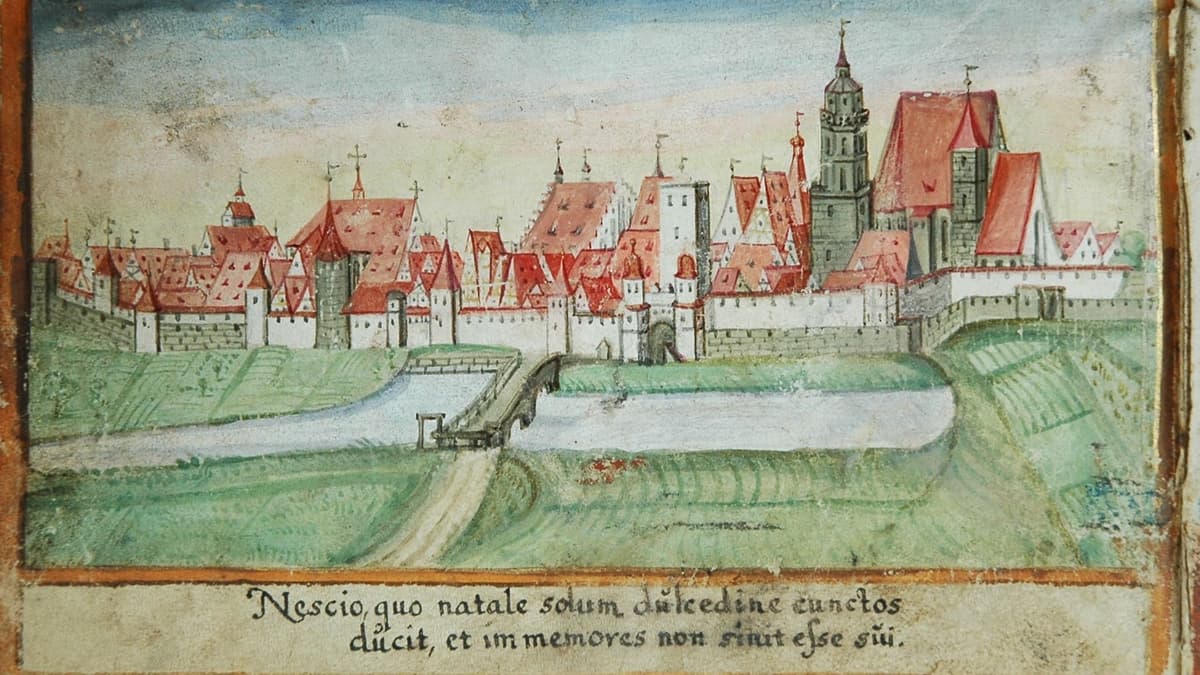 Nescio, quo natale solum dŭlcedine cunctos
dŭcit, et immemores non sinit eſse sŭi.